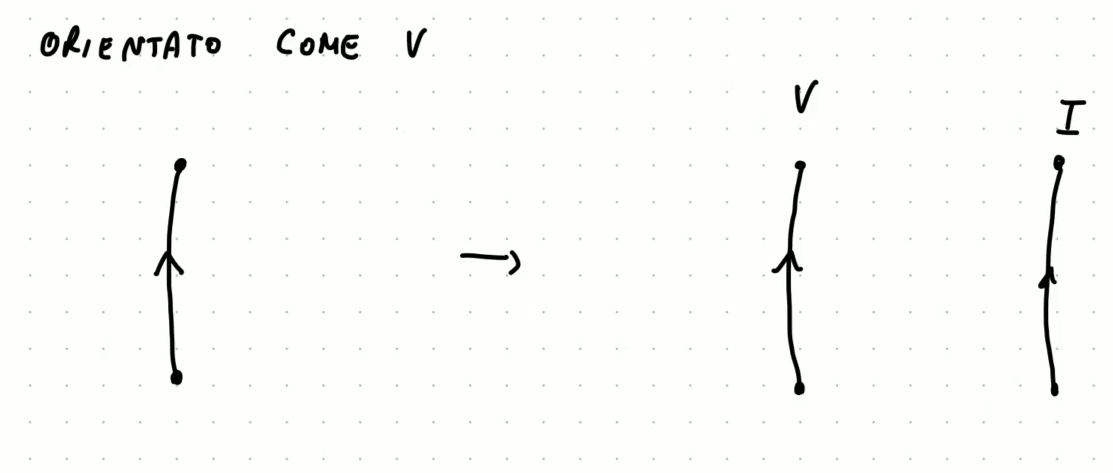 ORIENTATO COME V
V
I